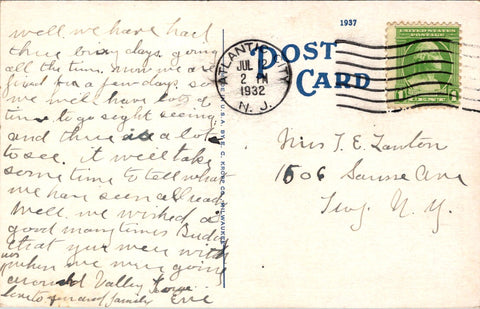 well we have had
three busy days going
all the time. Now we are
fixed for a few days so
we will have lots of
time to go sight seeing
and there is a lot
to see. it will take
some time to tell what
we have seen all ready
Well. we wished a
good many times Buddy
that you were with
us when we were going
around Valley Forge.
love to you and family Eve
1937
POST
CARD
ATLANTIC CITY
JUL
2 PM
1932
N. J.
UNITED STATES POSTAGE
1 CENT 1
U.S.A. BY E. C. KROPP CO. MILWAUKEE
Mrs T. E. Lanton
1506 Ave
Troy N. Y.